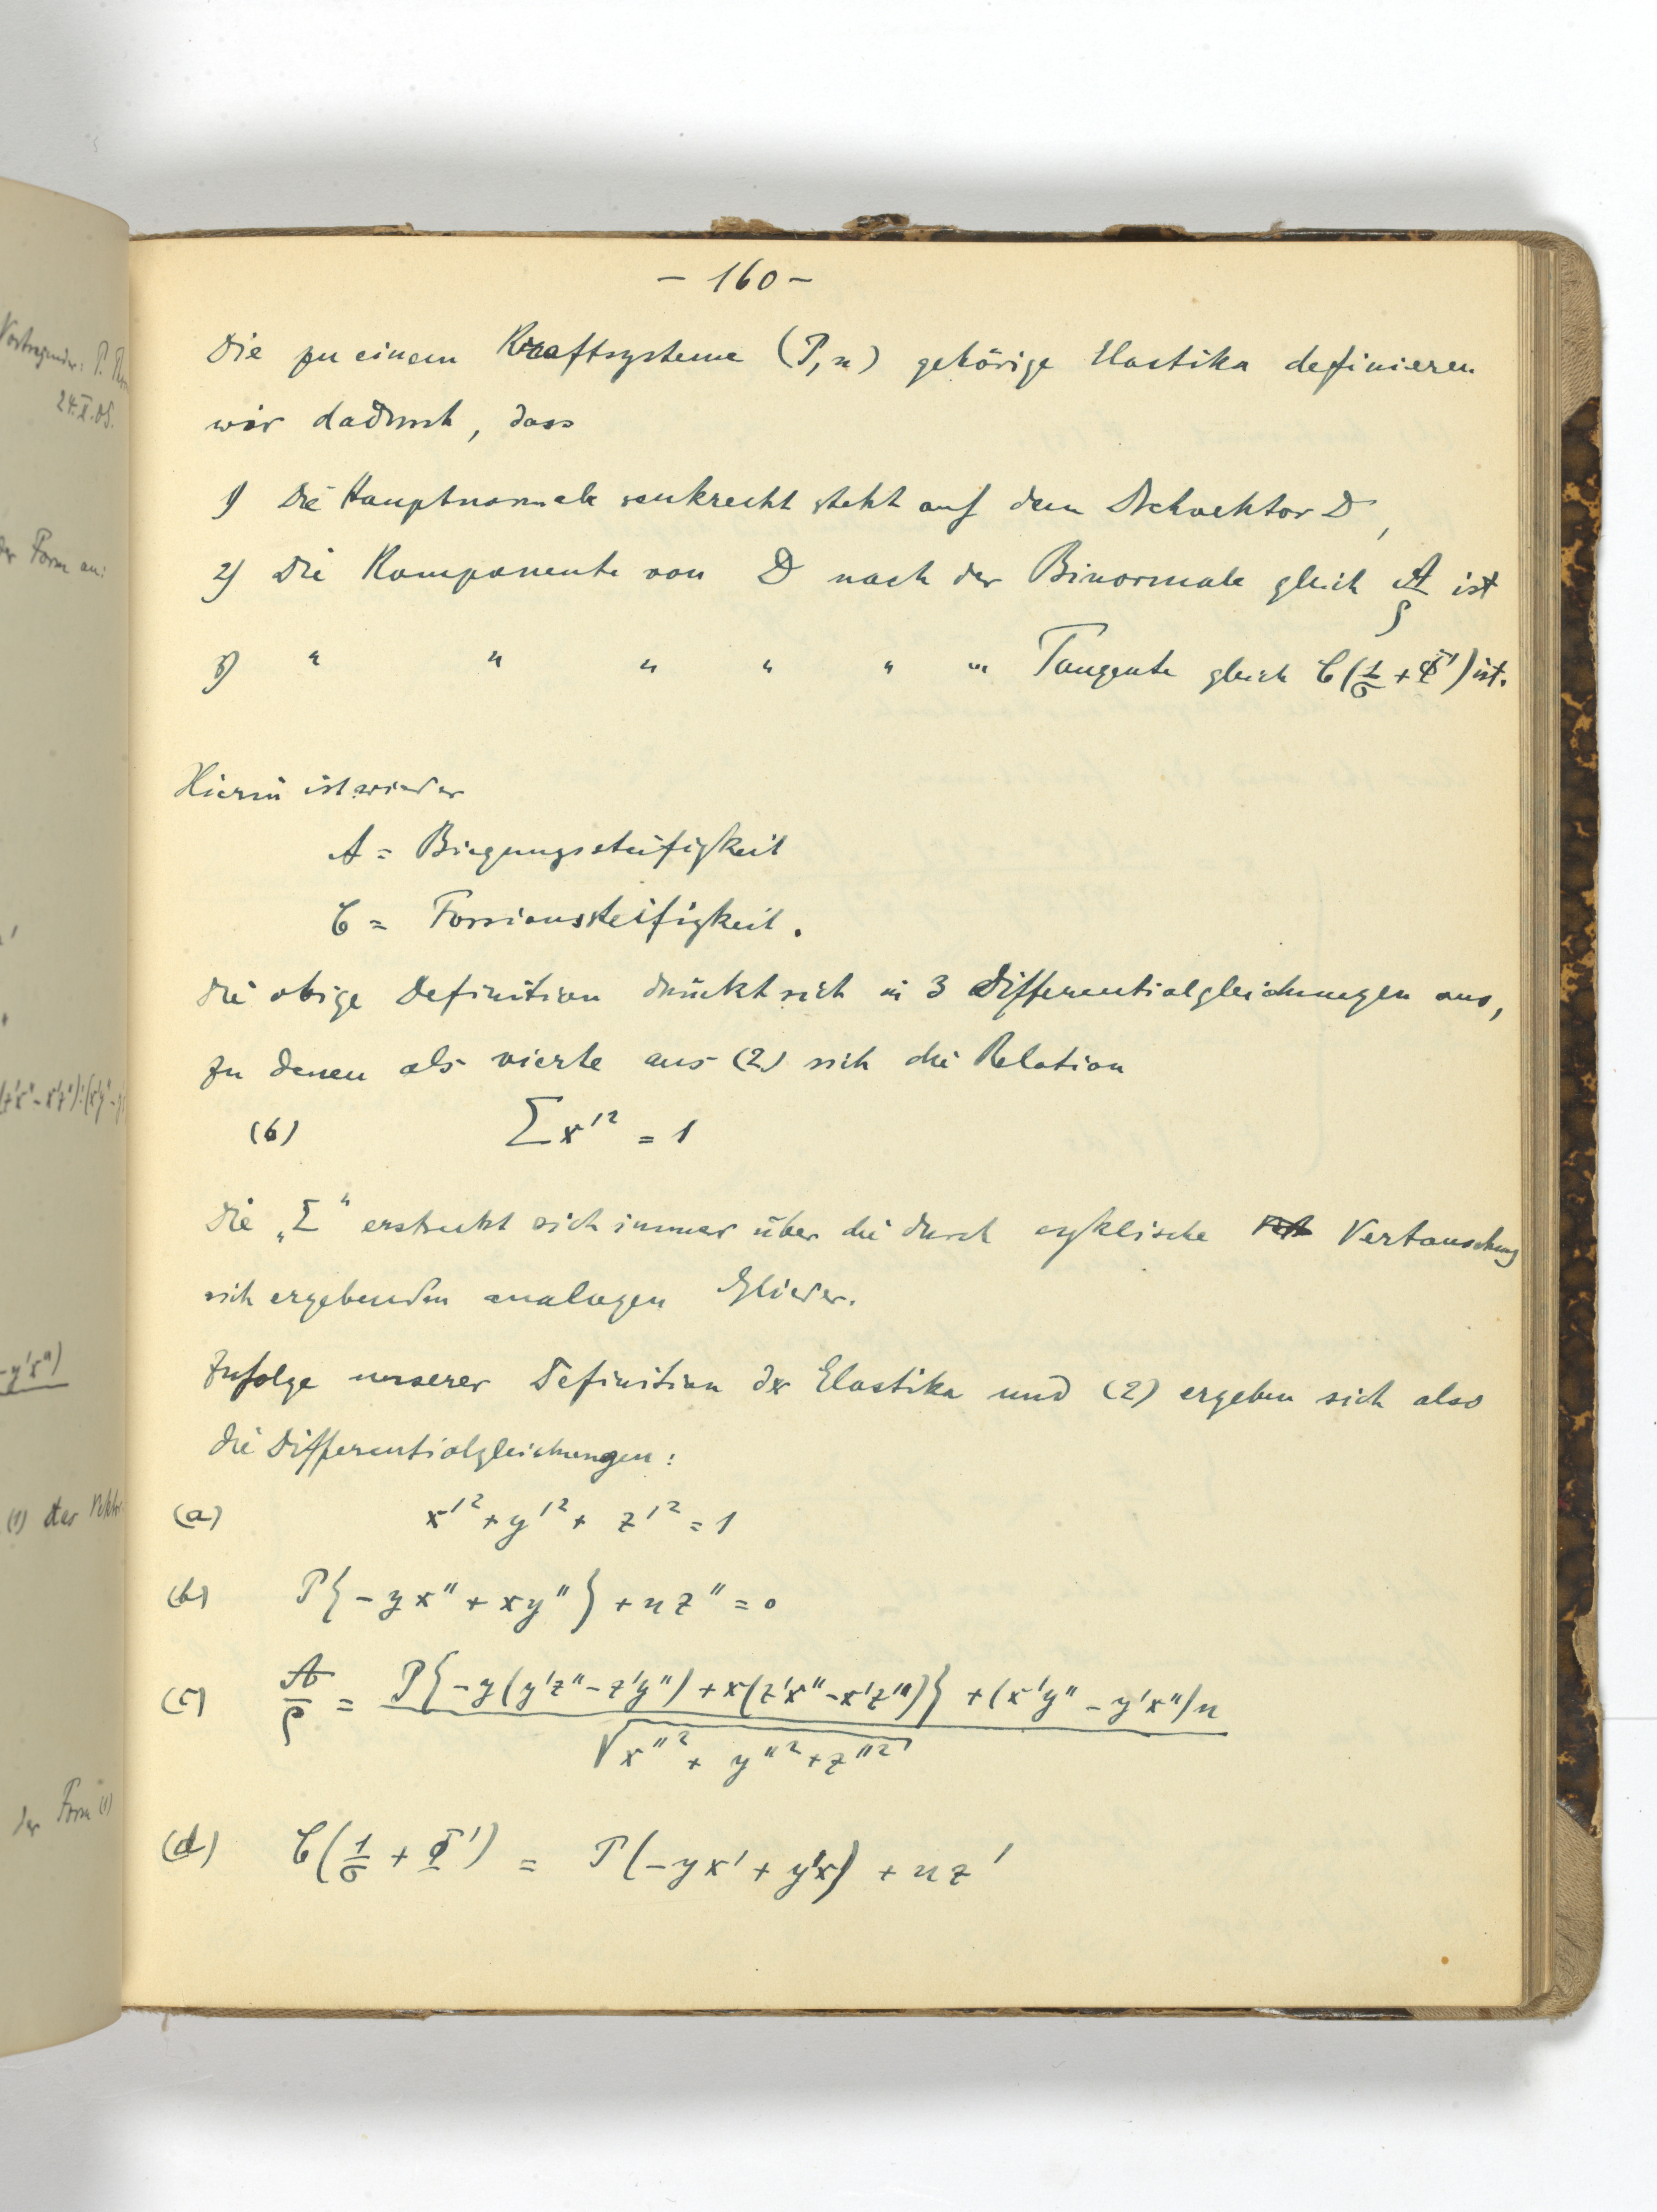 Vortragender: P.
24.X.05.
der Form an:
(1) der
der Form (1)
– 160 –
Die zu einem Kraftsysteme (P, n) gehörige Elastika definieren
wir dadurch, dass
1) Die Hauptnormale senkrecht steht auf dem Drehvektor D,
2) Die Komponente von D nach der Binormale gleich A/ρ ist
3) " " " " " " Tangente gleich C(1/σ + Φ') ist.
Hierin ist wieder
A = Biegungssteifigkeit
C = Torsionssteifigkeit.
Die obige Definition drückt sich in 3 Differentialgleichungen aus,
zu denen als vierte aus (2) sich die Relation
(6) Σx'² = 1
Die „Σ“ erstreckt sich immer über die durch cyklische Vertauschung
sich ergebenden analogen Glieder.
Zufolge unserer Definition der Elastika und (2) ergeben sich also
die Differentialgleichungen:
(a) x'² + y'² + z'² = 1
(b) P{-yx'' + xy''} + nz'' = 0
(c) A/ρ = P{-y(y'z'' - z'y'') + x(z'x'' - x'z'')} + (x'y'' - y'x'')n / √x''² + y''² + z''²
(d) C(1/σ + Φ') = P(-yx' + y'x) + nz'